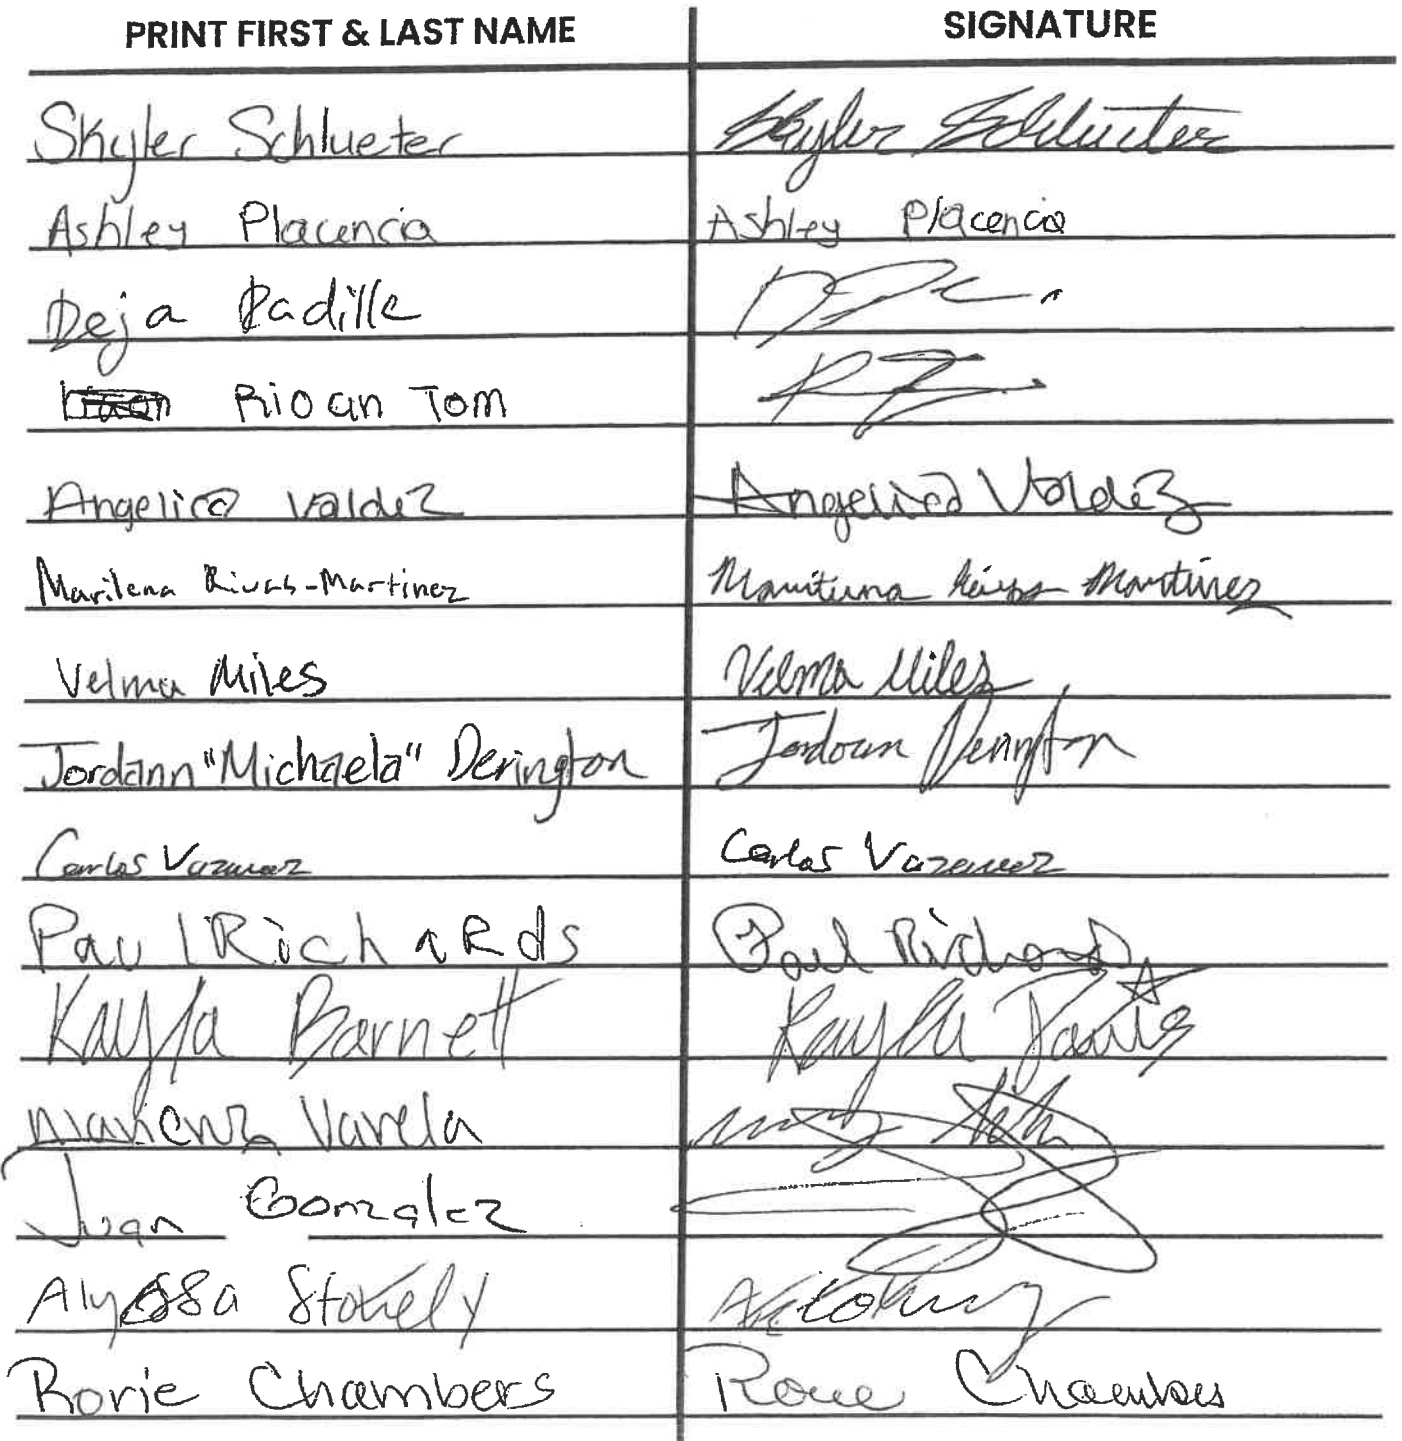 PRINT FIRST & LAST NAME SIGNATURE
Skyler Schlueter Skyler Schlueter
Ashley Placencia Ashley Placencia
Deja Padilla
Rioan Tom
Angelica Valdez Angelica Valdez
Marilena Rivas-Martinez Rivas Martinez
Velma Miles Velma Miles
Jordann "Michaela" Derington Jordann Derington
Carlos Vazquez Carlos Vazquez
Paul RichaRds Paul Richards
Kayla Barnett Kayla
Varela
Juan Gonzalez
Alyssa Stokely
Rorie Chambers Rorie Chambers